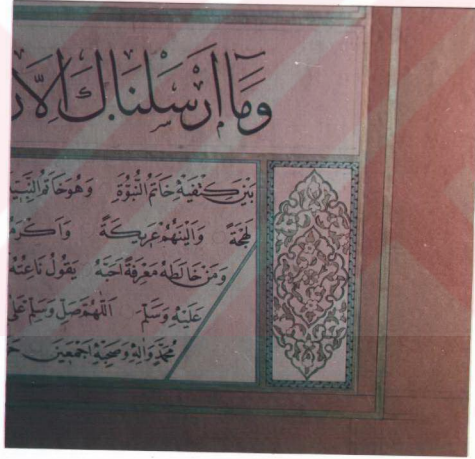 وَمَا أَرْسَلْنَاكَ إِلَّا
بَيْنَ كَتِفَيْهِ خَاتَمُ النُّبُوَّةِ وَهُوَ خَاتَمُ النَّبِيِّينَ
لَهْجَةً وَأَلْيَنُهُمْ عَرِيكَةً
وَمَنْ خَالَطَهُ مَعْرِفَةً أَحَبَّهُ يَقُولُ نَاعِتُهُ
عَلَيْهِ وَسَلَّمَ اَللّٰهُمَّ صَلِّ وَسَلِّمْ عَلَى
مُحَمَّدٍ وَآلِهِ وَصَحْبِهِ أَجْمَعِينَ